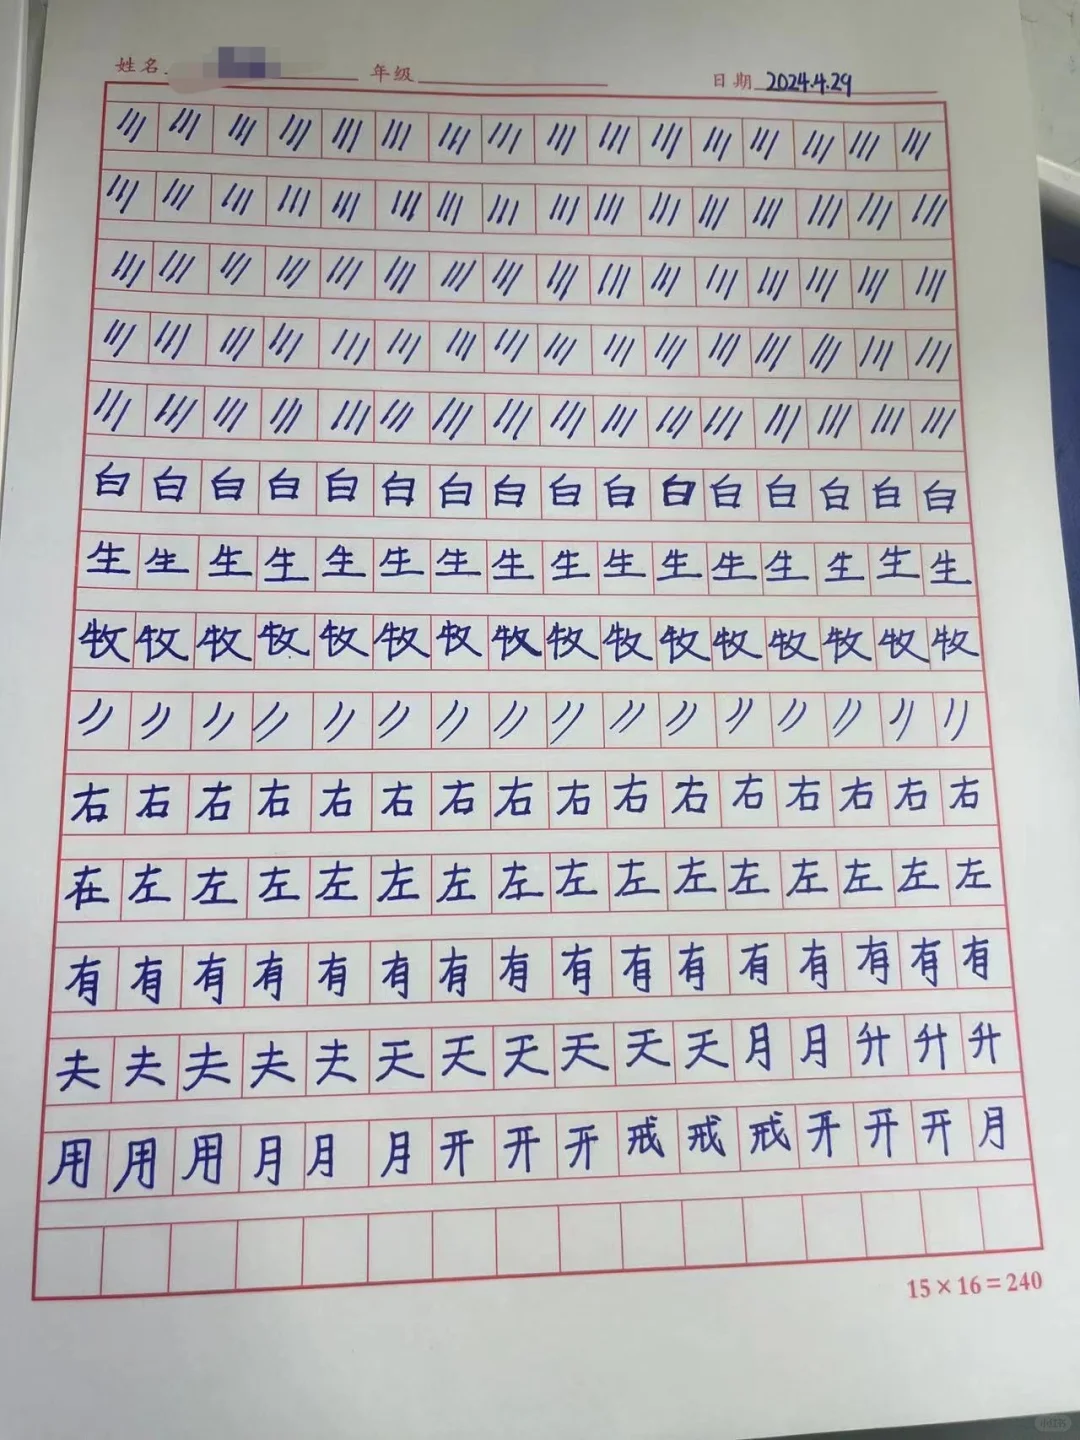 姓名 年级 日期 2024.4.29
白 白 白 白 白 白 白 白 白 白 白 白 白 白 白 白
生 生 生 生 生 生 生 生 生 生 生 生 生 生 生 生
牧 牧 牧 牧 牧 牧 牧 牧 牧 牧 牧 牧 牧 牧 牧 牧
右 右 右 右 右 右 右 右 右 右 右 右 右 右 右 右
在 左 左 左 左 左 左 左 左 左 左 左 左 左 左 左
有 有 有 有 有 有 有 有 有 有 有 有 有 有 有 有
夫 夫 夫 夫 夫 天 天 天 天 天 天 月 月 升 升 升
用 用 用 月 月 月 开 开 开 戒 戒 戒 开 开 开 月
15×16=240